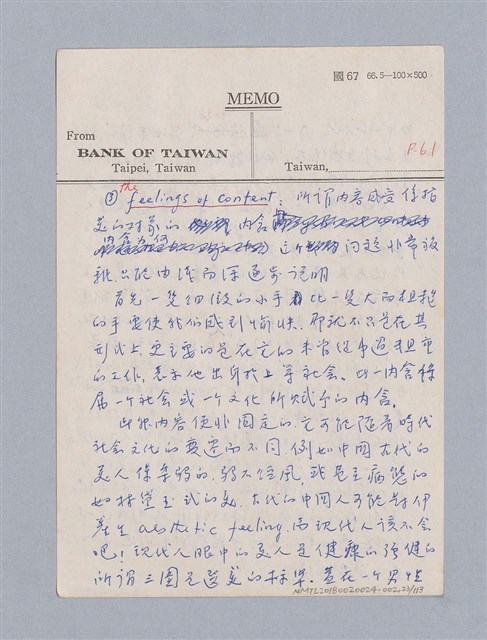 國 67 66.5—100×500
MEMO
From
BANK OF TAIWAN
Taipei, Taiwan
Taiwan,
P.61
③ the feelings of content: 所謂内容感受係指
美的对象的 内含 这个 问題非常複
雜,只能由淺而深逐步説明
首先一雙细緻的小手比一雙大而粗糙
的手要使我们感到愉快,那就不只是在其
形式上,更主要的是在它的未曾從事過粗重
的工作,表示他出身於上等社会。此一内含係
屬一个社会或一个文化所赋予的内含。
此種内容便非固定的,它可能随着時代
社会文化的變遷而不同,例如中國古代的
美人係柔弱的,弱不经風,或是主病態的
如林黛玉式的美,古代的中國人可能對伊
產生 aesthetic feeling,而現代人該不会
吧!現代人眼中的美人是健康的強健的
所謂三圍是選美的标準。蓋在一个男性
NMTL20180020024-002.23/113